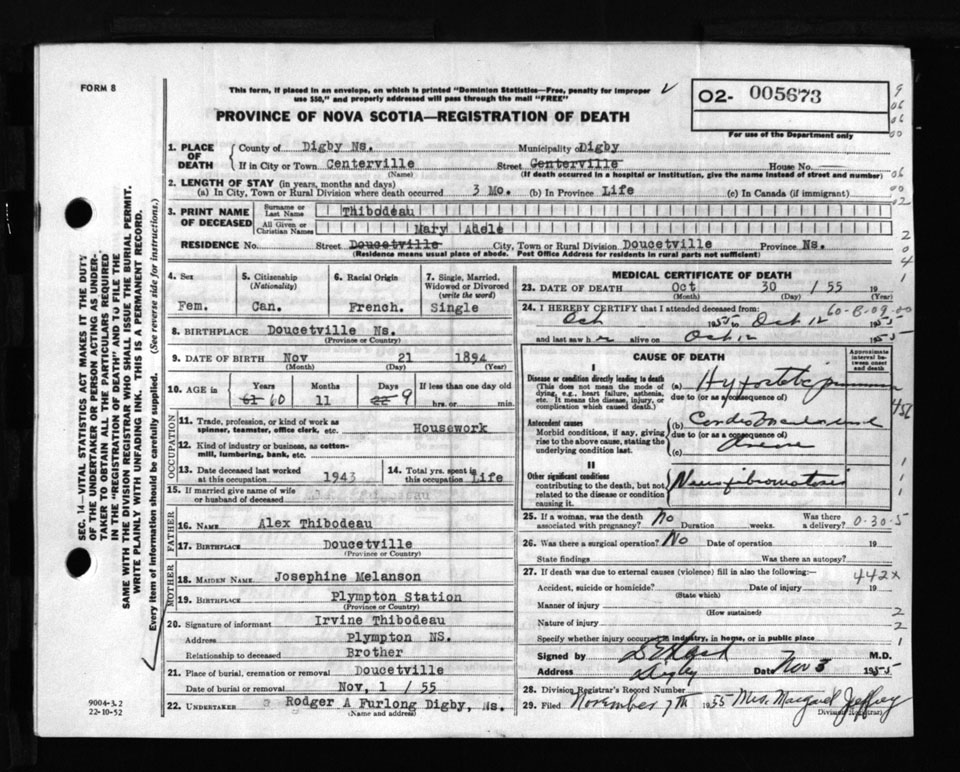 FORM 8
This form, if placed in an envelope, on which is printed "Dominion Statistics—Free, penalty for improper
use $50," and properly addressed will pass through the mail "FREE"
02- 005673
For use of the Department only
PROVINCE OF NOVA SCOTIA—REGISTRATION OF DEATH
1. PLACE OF DEATH
County of Digby Ns. Municipality of Digby
If in City or Town Centerville Street Centerville House No.
(Name) (If death occurred in a hospital or institution, give the name instead of street and number)
2. LENGTH OF STAY (in years, months and days)
(a) In City, Town or Rural Division where death occurred 3 Mo. (b) In Province Life (c) In Canada (if immigrant)
3. PRINT NAME OF DECEASED
Surname or Last Name Thibodeau
All Given or Christian Names Mary Adele
RESIDENCE No. Street Doucetville City, Town or Rural Division Doucetville Province Ns.
(Residence means usual place of abode. Post Office Address for residents in rural parts not sufficient)
4. Sex
Fem.
5. Citizenship (Nationality)
Can.
6. Racial Origin
French.
7. Single, Married, Widowed or Divorced (write the word)
Single
8. BIRTHPLACE Doucetville Ns.
(Province or Country)
9. DATE OF BIRTH Nov 21 1894
(Month) (Day) (Year)
10. AGE in Years Months Days If less than one day old
61 60 11 9 hrs. or min.
OCCUPATION
11. Trade, profession, or kind of work as
spinner, teamster, office clerk, etc. Housework
12. Kind of industry or business, as cotton-
mill, lumbering, bank, etc.
13. Date deceased last worked
at this occupation 1943
14. Total yrs. spent in
this occupation Life
15. If married give name of wife
or husband of deceased
FATHER
16. NAME Alex Thibodeau
17. BIRTHPLACE Doucetville
(Province or Country)
MOTHER
18. MAIDEN NAME Josephine Melanson
19. BIRTHPLACE Plympton Station
(Province or Country)
20. Signature of informant Irvine Thibodeau
Address Plympton NS.
Relationship to deceased Brother
21. Place of burial, cremation or removal Doucetville
Date of burial or removal Nov, 1 / 55
22. UNDERTAKER Rodger A Furlong Digby, Ns.
(Name and address)
MEDICAL CERTIFICATE OF DEATH
23. DATE OF DEATH Oct 30 / 55 19
(Month) (Day) (Year)
24. I HEREBY CERTIFY that I attended deceased from:
60-8-09-00
Oct 1955 to Oct 12 1955
and last saw her alive on Oct 12 1955
CAUSE OF DEATH
Approximate interval between onset and death
I
Disease or condition directly leading to death
(This does not mean the mode of
dying, e.g., heart failure, asthenia,
etc. It means the disease, injury, or
complication which caused death.)
(a) Hypostatic
due to (or as a consequence of)
Antecedent causes
Morbid conditions, if any, giving
rise to the above cause, stating the
underlying condition last.
(b)
due to (or as a consequence of)
(c)
II
Other significant conditions
contributing to the death, but not
related to the disease or condition
causing it.
Neurofibromatosis
25. If a woman, was the death
associated with pregnancy? No Duration weeks. Was there a delivery? 0-30-5
26. Was there a surgical operation? No Date of operation 19
State findings Was there an autopsy?
27. If death was due to external causes (violence) fill in also the following:— 442x
Accident, suicide or homicide? Date of injury 19
(State which)
Manner of injury
(How sustained)
Nature of injury
Specify whether injury occurred in industry, in home, or in public place
Signed by M.D.
Address Digby Date Nov 3 1955
28. Division Registrar's Record Number
29. Filed November 7th 1955 Mrs. Margaret Jeffrey
Division Registrar
SEC. 14—VITAL STATISTICS ACT MAKES IT THE DUTY
OF THE UNDERTAKER OR PERSON ACTING AS UNDER-
TAKER TO OBTAIN ALL THE PARTICULARS REQUIRED
IN THE "REGISTRATION OF DEATH" AND TO FILE THE
SAME WITH THE DIVISION REGISTRAR WHO SHALL ISSUE THE BURIAL PERMIT.
WRITE PLAINLY WITH UNFADING INK. THIS IS A PERMANENT RECORD.
Every item of information should be carefully supplied. (See reverse side for instructions.)
9004-3.2
22-10-52